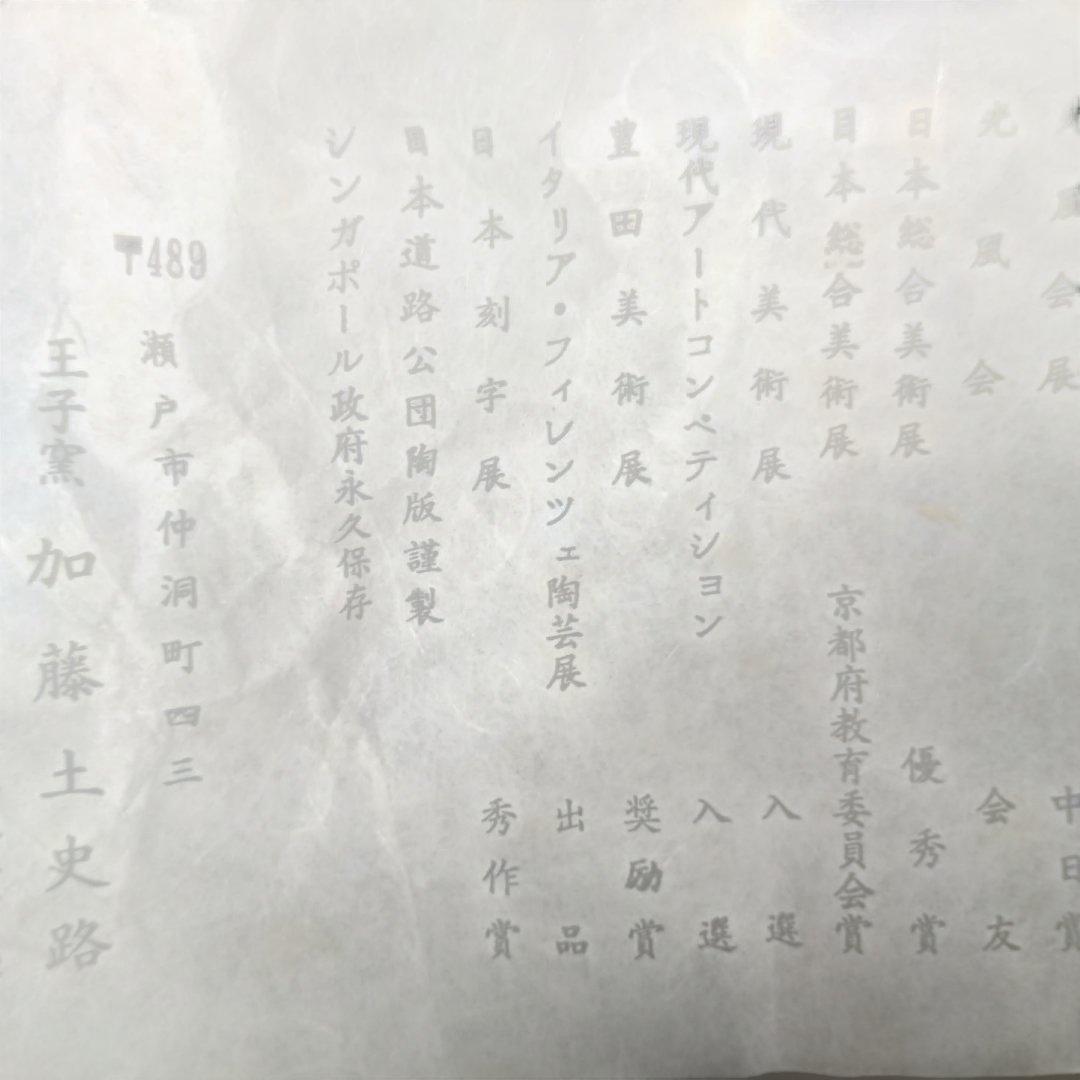 光風会展 中日賞
光風会 会友
日本総合美術展 優秀賞
日本総合美術展 京都府教育委員会賞
現代美術展 入選
現代アートコンペティション 入選
豊田美術展 奨励賞
イタリア・フィレンツェ陶芸展 出品
日本刻字展 秀作賞
日本道路公団陶版謹製
シンガポール政府永久保存
〒489
瀬戸市仲洞町四三
王子窯 加藤土史路